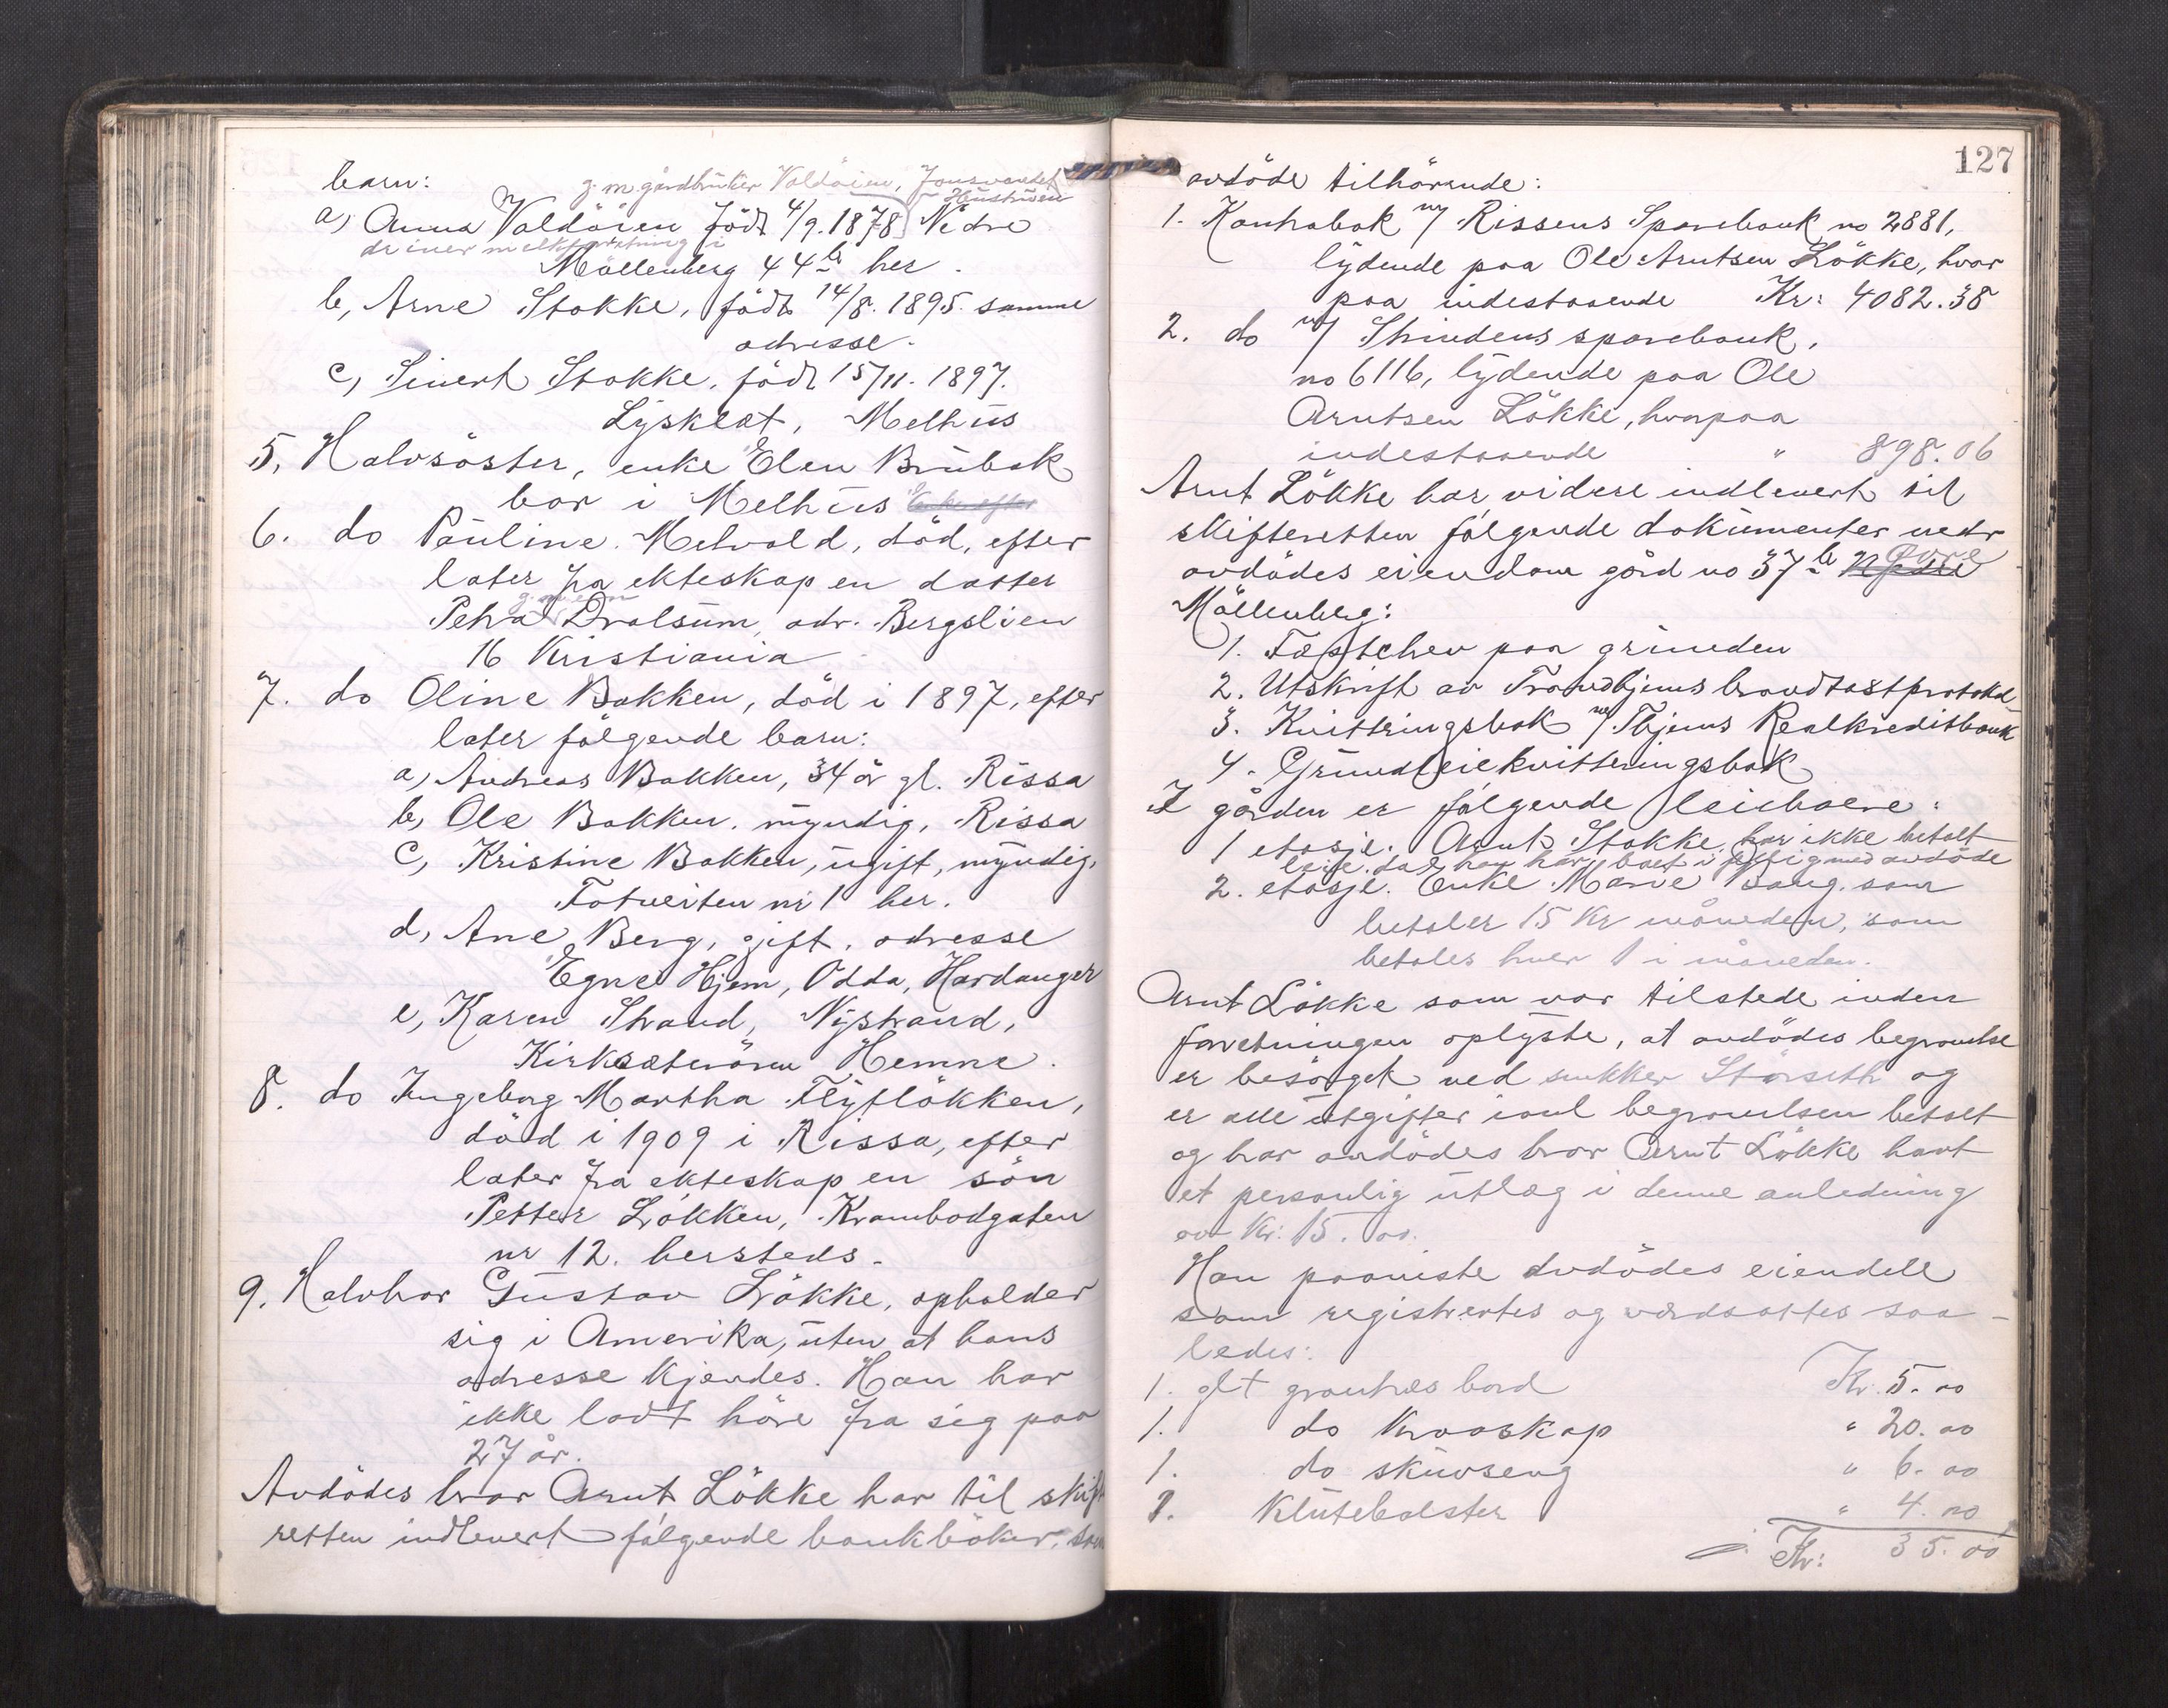 barn:
g. m. gårdbruker Valdöien, Jonsvandet
Hustruen
a, Anna Valdöien födt 4/9. 1878 Nedre
driver melkforretning i
Möllenberg 44 b her.
b, Arne Stokke, född 14/8. 1895. samme
adresse.
c, Sivert Stokke, född 15/11. 1897.
Lysklet, Melhus
5. Halvsöster, enke Elen Brubak
bor i Melhus
6. do Pauline Melvold, död, efter
later fra ekteskap en datter
Petra Drolsum, adr. Bergslien
16 Kristiania
7. do Oline Bakken, död i 1897, efter
later følgende barn:
a, Andreas Bakken, 34 år gl. Rissa
b, Ole Bakken, myndig, Rissa
c, Kristine Bakken, ugift, myndig,
Totveiten nr 1 her.
d, Ane Berg, gift, adresse
Egne Hjem, Odda, Hardanger
e, Karen Strand, Nystrand,
Kirksæterören Hemne.
8. do Ingeborg Martha Flytlökken,
död i 1909 i Rissa, efter
later fra ekteskap en sön
Petter Lökken, Krambodgaten
nr 12. hersteds.
9. Halvbror Gustav Lökke, opholder
sig i Amerika, uten at hans
adresse kjendes. Han har
ikke ladt höre fra sig paa
27 år.
Avdödes bror Arnt Lökke har til skift
retten indlevert følgende bankböker, som
127
avdöde tilhörende:
1. Kontrabok m/ Rissens Sparebank no 2881,
lydende paa Ole Arntsen Lökke, hvor
paa indestaaende Kr: 4082.38
2. do m/ Strindens sparebank,
no 6116, lydende paa Ole
Arntsen Lökke, hvorpaa
indestaaende " 898.06
Arnt Lökke har videre indlevert til
skifteretten følgende dokumenter vedr
avdödes eiendom gård no 37 b Nedre Övre
Möllenberg:
1. Fæstebrev paa grunden
2. Utskrift av Trondhjems brandtakstprotokol
3. Kvittringsbok m/ Thjems Realkreditbank
4. Grundleiekvitteringsbok
I gården er følgende leieboere:
1 etasje. Arnt Stokke, har ikke betalt
leie, da han har boet i fællig med avdöde
2. etasje. Enke Marie Haug, som
betaler 15 Kr måneden, som
betales hver 1 i måneden.
Arnt Lökke som var tilstede under
forretningen oplyste, at avdödes begravelse
er besörget ved snekker Störseth og
er alle utgifter i anl begravelsen betalt
og har avdödes bror Arnt Lökke havt
et personlig utlæg i denne anledning
av Kr: 15. oo.
Han paaviste avdödes eiendele
som registrertes og værdsattes saa-
ledes:
1. glt grantræs bord Kr. 5. oo
1. do Kroaskap " 20. oo
1. do skuvseng " 6. oo
1. Klutebolster " 4. oo
Kr: 35. oo